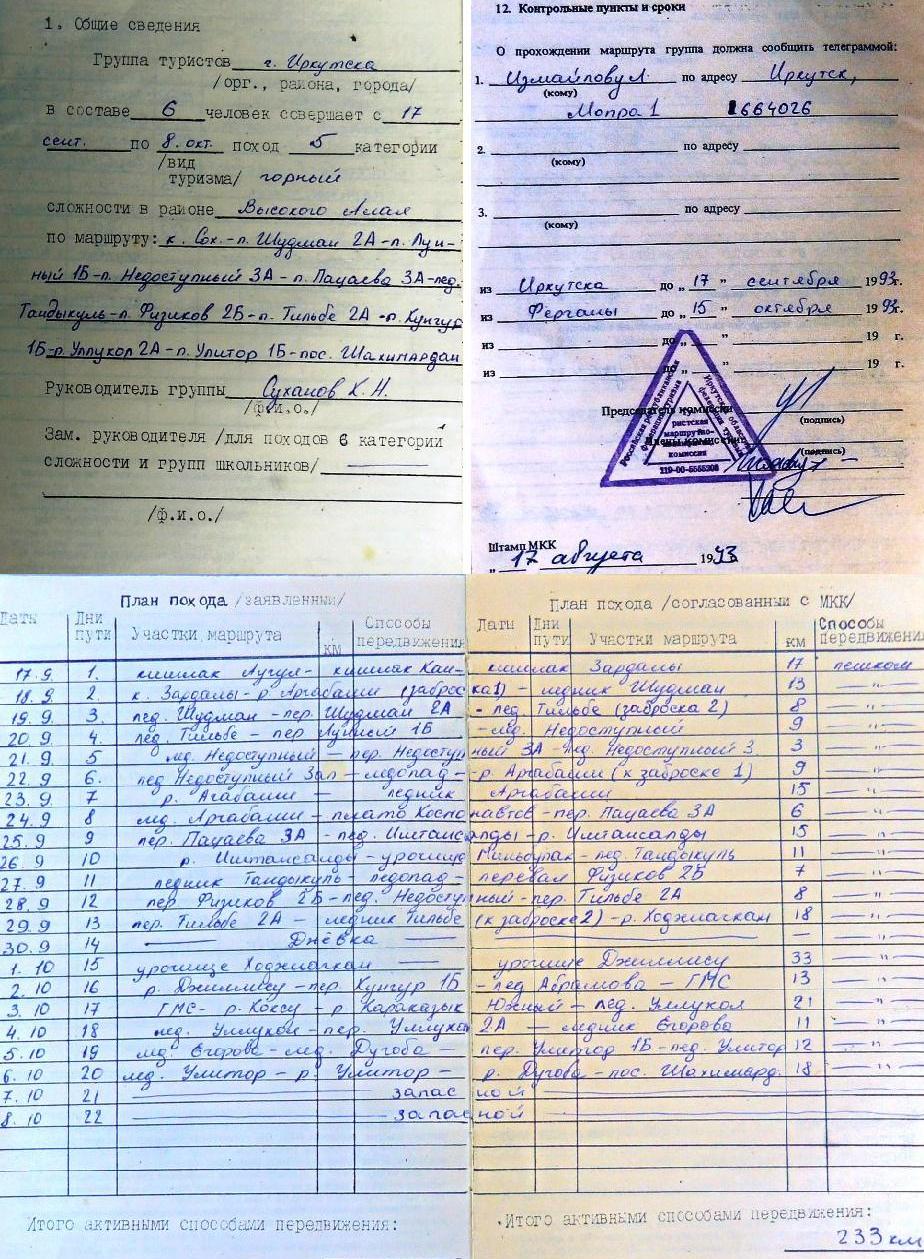 1. Общие сведения
Группа туристов г. Иркутска
/орг., района, города/
в составе 6 человек совершает с 17
сент. по 8. окт. поход 5 категории
/вид
туризма/ горный
сложности в районе Высокого Алая
по маршруту: к. Сох.-п. Шудман 2А-п. Лун-
ный 1Б-п. Недоступный 3А-п. Пацаева 3А-лед.
Тандыкуль-п. Физиков 2Б-п. Тильбе 2А-п. Кунгур
1Б-р. Уллукол 2А-п. Улитор 1Б-пос. Шахимардан
Руководитель группы Суханов К.Н.
/ф.и.о./
Зам. руководителя /для походов 6 категории
сложности и групп школьников/
/ф.и.о./
12. Контрольные пункты и сроки
О прохождении маршрута группа должна сообщить телеграммой:
1. Измайлову Л. по адресу Иркутск,
(кому)
Мопра 1 664026
2. по адресу
(кому)
3. по адресу
(кому)
из Иркутска до „ 17 " сентября 1993г.
из Ферганы до „ 15 " октября 1993г.
из до „ " 19 г.
из до „ " 19 г.
Председатель комиссии
(подпись)
Члены комиссии
(подпись)
Российская республиканская федерация туризма
Иркутская областная федерация туризма
ристская
маршрутно-
комиссия
119-00-5555308
Штамп МКК
„ 17 августа 1993
План похода /заявленный/
Даты Дни пути Участки маршрута км Способы передвижения
План похода /согласованный с МКК/
Даты Дни пути Участки маршрута км Способы передвижения
17.9 1. кишлак Аугул - кишлак Кан- кишлак Зардалы 17 пешком
18.9 2. к. Зардалы - р. Аргабаши (заброска 1) - ледник Шудман 13 —"—
19.9 3. лед. Шудман - пер. Шудман 2А - лед. Тильбе (заброска 2) 8 —"—
20.9 4. лед Тильбе - пер Лунный 1Б - лед. Недоступный 9 —"—
21.9 5 лед. Недоступный - пер. Недоступный 3А - лед. Недоступный З 3 —"—
22.9 6. лед Недоступный Зап - ледопад - р. Аргабаши (к заброске 1) 9 —"—
23.9 7 р. Агабаши - ледник Аргабаши 15 —"—
24.9 8 лед. Аргабаши - плато Космонавтов - пер. Пацаева 3А 6 —"—
25.9 9 пер. Пацаева 3А - лед. Имтансалды - р. Имтансалды 15 —"—
26.9 10 р. Имтансалды - урочище Минбулак - лед. Тандыкуль 11 —"—
27.9 11 ледник Тандыкуль - ледопад - перевал Физиков 2Б 7 —"—
28.9 12 пер Физиков 2Б - лед. Недоступный - пер. Тильбе 2А 8 —"—
29.9 13 пер. Тильбе 2А - ледник Тильбе (к заброске 2) - р. Ходжиачкан 18 —"—
30.9 14 — Днёвка — — —"—
1.10 15 урочище Ходжиачкан - урочище Джиллису 33 —"—
2.10 16 р. Джиллису - пер. Кунгур 1Б - лед Абрамова - ГМС 13 —"—
3.10 17 ГМС - р. Коксу - р Караказык Южный - лед. Уллукол 21 —"—
4.10 18 лед. Уллукол - пер. Уллукол 2А - ледник Егорова 11 —"—
5.10 19 лед Егорова - лед. Дугоба - пер. Улитор 1Б - лед. Улитор 12 —"—
6.10 20 лед. Улитор - р. Улитор - р. Дугова - пос. Шахимард. 18 —"—
7.10 21 запасной —"—
8.10 22 запасной —"—
Итого активными способами передвижения:
Итого активными способами передвижения:
233 км